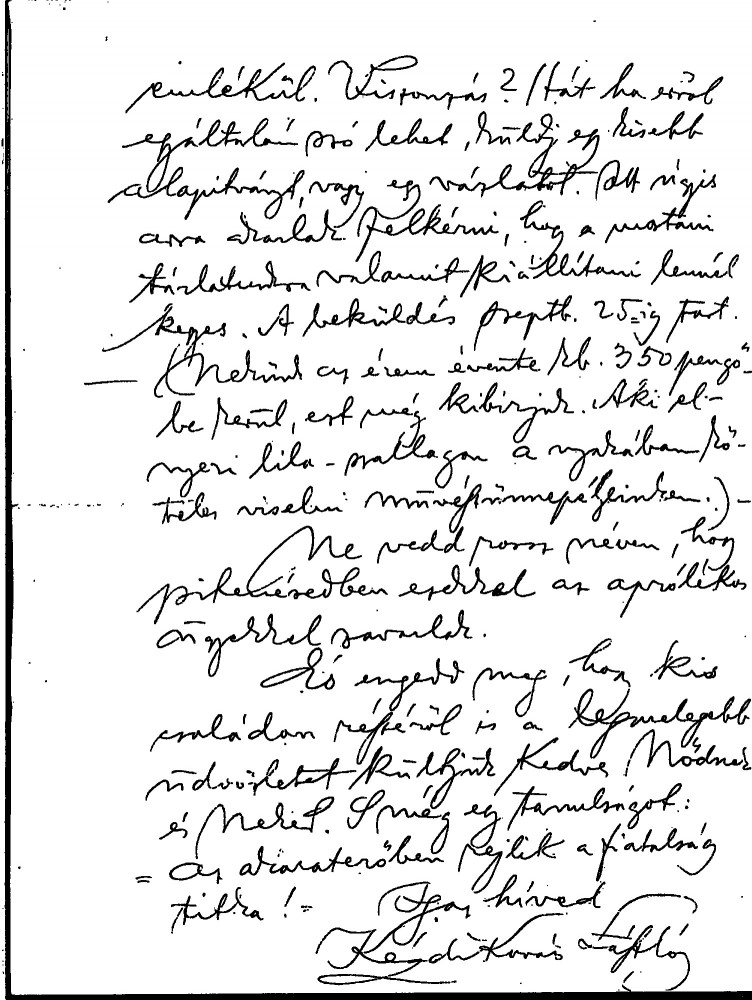 emlékül. Viszonzás? Hát ha erről
egyáltalán szó lehet, küldj egy kisebb
alapítványt, vagy egy vázlatot. Itt úgyis
arra akarlak felkérni, hogy a mostani
tárlatunkra valamit kiállítani lennél
kegyes. A beküldés szeptb. 25-ig tart.
(Nekünk az érem évente kb. 350 pengő-
be kerül, ezt még kibírjuk. Aki el-
nyeri lila-szallagon a nyakában kö-
teles viselni művészünnepélyeinken.)-
Ne vedd rossz néven, hogy
pihenésedben ezekkel az aprólékos
ügyekkel zavarlak.
És engedd meg, hogy kis
családom részéről is a legmelegebb
üdvözletet küldjük Kedves Nődnek
és Neked. S még egy tanulságot:
= az akaraterőben rejlik a fiatalság
titka! =
Igaz híved
Kézdi Kovács László